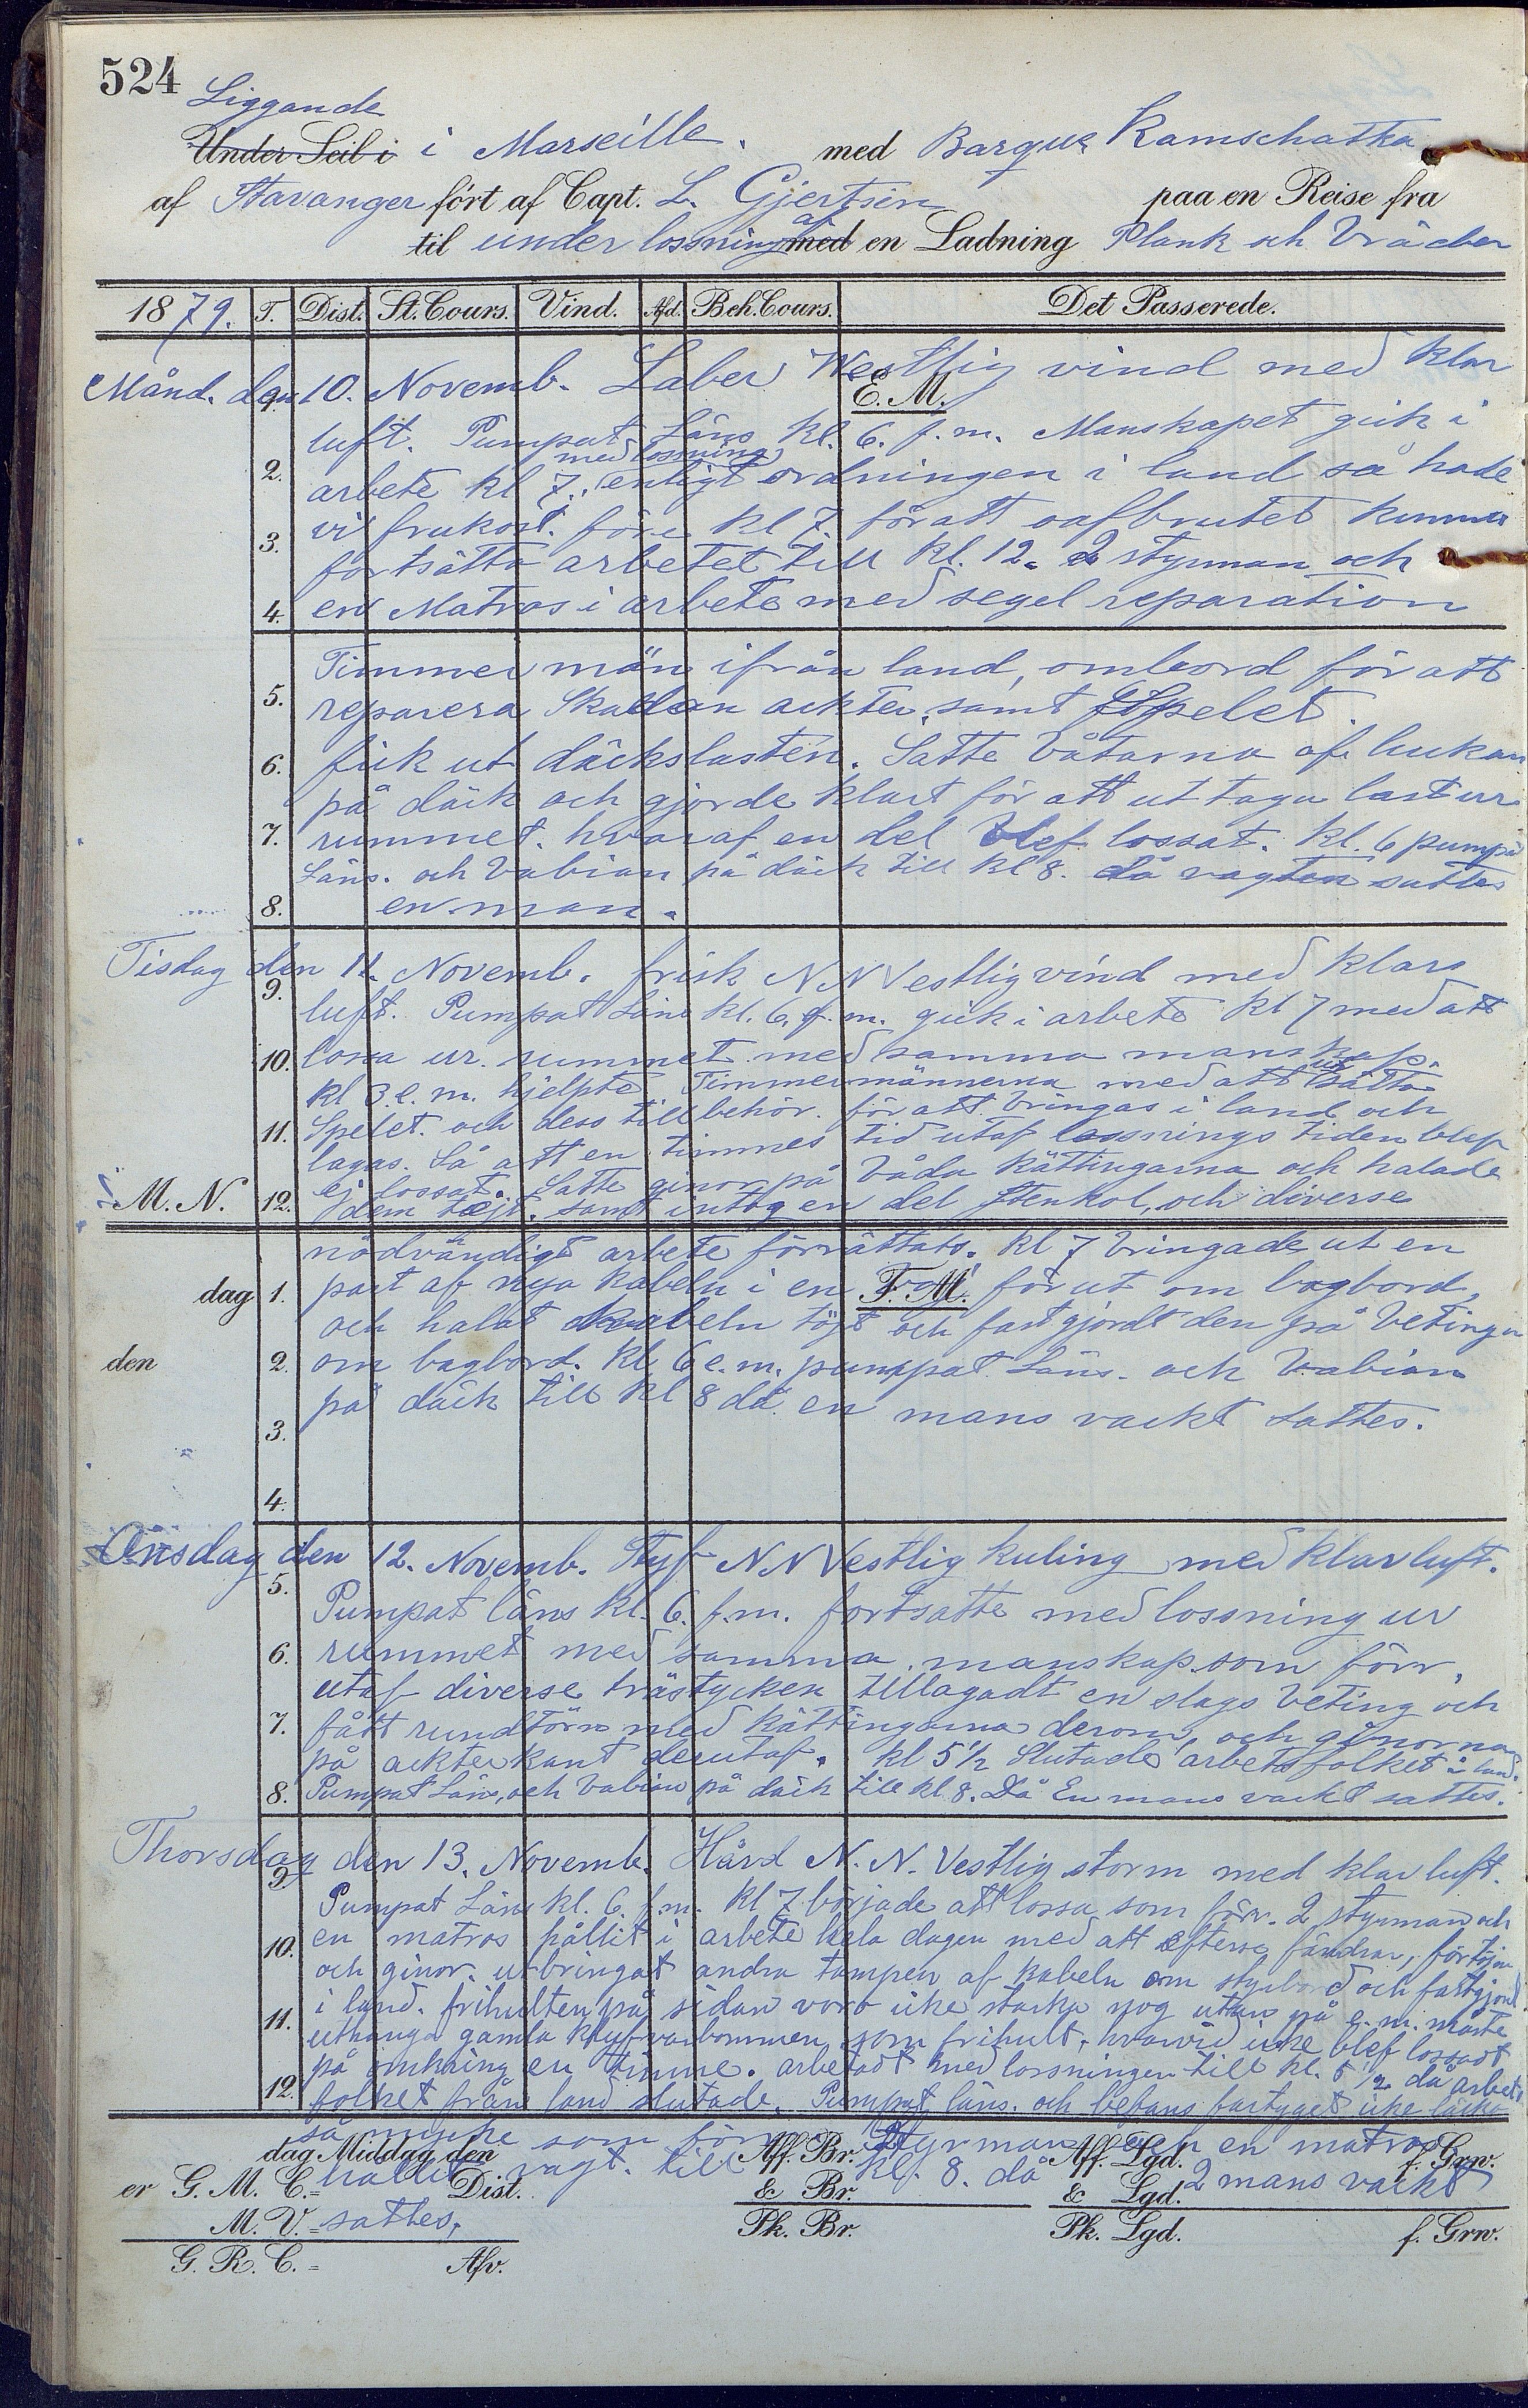 524
Liggande
Under Seil i i Marseille. med Barque Kamschatka
af Stavanger fört af Capt. L. Gjertsen paa en Reise fra
til under lossning af med en Ladning Plank och Bräder
1879. T. Dist. St. Cours. Vind. Afd. Beh. Cours. Det Passerede.
Månd. den 10. Novemb. Laber Westlig vind med klar
1. E. M.
luft. Pumpat Läns kl. 6. f.m. Manskapet gick i
med lossning
2. arbete kl 7. enligt ordningen i land så hade
vi frukost. före kl 7. för att oafbrutet kunna
3. fortsätta arbetet till kl. 12. 2 styrman och
4. en Matros i arbete med segel reparation
Timmer män ifrån land, ombord för att
5. reparera Skadan ackter, samt Spelet.
6. fick ut däckslasten. Satte båtarna af luckan
på däck och gjorde klart för att uttaga last ur
7. rummet. hvaraf en del blef lossat. kl. 6 pump.
Läns. och babian på däck till kl 8. då vagten sattes
8. en man.
Tisdag den 11. Novemb. frisk N N Vestlig vind med klar
9.
luft. Pumpat Läns kl. 6. f.m. gick i arbete kl 7 med att
10. lossa ur rummet med samma manskap.
kl 3 e.m. hjelpte Timmermännerna med att sätta
11. Spelet och dess tillbehör. för att bringas i land och
lagas. Så att en timmes tid utaf lossnings tiden blef
ej lossat. Satte ginor på båda Kättingarna och halade
M. N. 12. dem tejt. samt intog en del Stenkol, och diverse
nödvändigt arbete förrättats. kl 7 bringade ut en
dag 1. part af nya kabeln i en F. M. för ut om bagbord,
och halat kabeln töjt och fastgjordt den på betingen
den 2. om bagbord. kl 6 e.m. pumpat Läns. och babian
på däck till kl 8 då en mans vackt sattes.
3.
4.
Onsdag den 12. Novemb. Styf N N Vestlig kuling med klar luft.
5.
Pumpat läns kl. 6. f.m. fortsatte med lossning ur
6. rummet med samma manskap som förr.
utaf diverse trästycken tillagadt en slags beting och
7. fått rundtörn med kättingarna derom, och ginorna
på ackterkant derutaf. kl 5 1/2 Slutade arbetsfolket i land.
8. Pumpat Läns, och babian på däck till kl. 8. Då En mans vackt sattes.
Thorsdag den 13. Novemb. Hård N. N. Vestlig storm med klar luft.
9.
Pumpat Läns kl. 6. f.m. kl 7 började att lossa som förr. 2 styrman och
10. en matros hållit i arbete hela dagen med att efterse fändrar, förtöjn.
och ginor. utbringat andra tampen af kabeln om styrbord och fastgjord
i land. frihulten på sidan voro icke starka nog utan på e.m. måste
11. uthänga gamla klyfvarbommen som frihult, hvarvid icke blef lossadt
på omkring en timme. arbetadt med lossningen till kl. 5 1/2 då arbets
12. folket från land slutade. Pumpat läns. och befans fartyget icke läcka
så mycke som förr. Styrman och en matros
dag Middag den Aff. Br. Aff. Lgd. f. Grw.
er G. M. C. = hållit Dist. vagt. till & Br. kl. 8. då & Lgd. 2 mans vackt
M. V. = sattes. Pk. Br. Pk. Lgd. f. Grw.
G. R. C. = Afv.